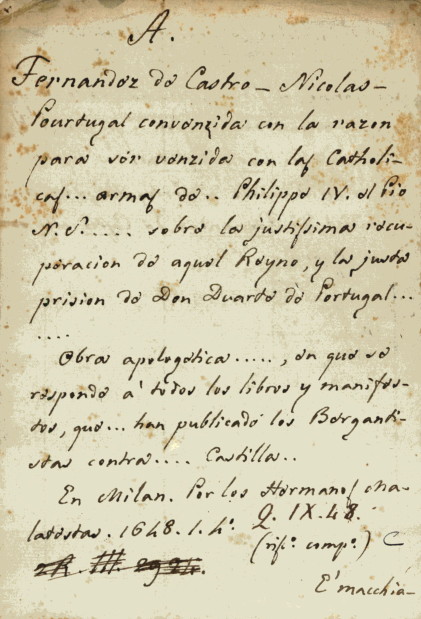 A.
Fernandez de Castro - Nicolas -
Pourtugal convenzida con la razon
para sér venzida con las Catholi-
cas... armas de.. Philippe IV. el Pio
N. S..... sobre la justissima recu-
peracion de aquel Reyno, y la justa
prision de Don Duarte de Portugal...
....
Obra apologética....., en que se
responde á todos los libros y manifes-
tos, que... han publicado los Berganti-
stas contra.... Castilla..
En Milan. Por los Hermanos Ma-
latestas. 1648. 1. 4º. Q. IX. 48.
(rif.º comp.º) C
2R. III. 2924.
E' macchia-